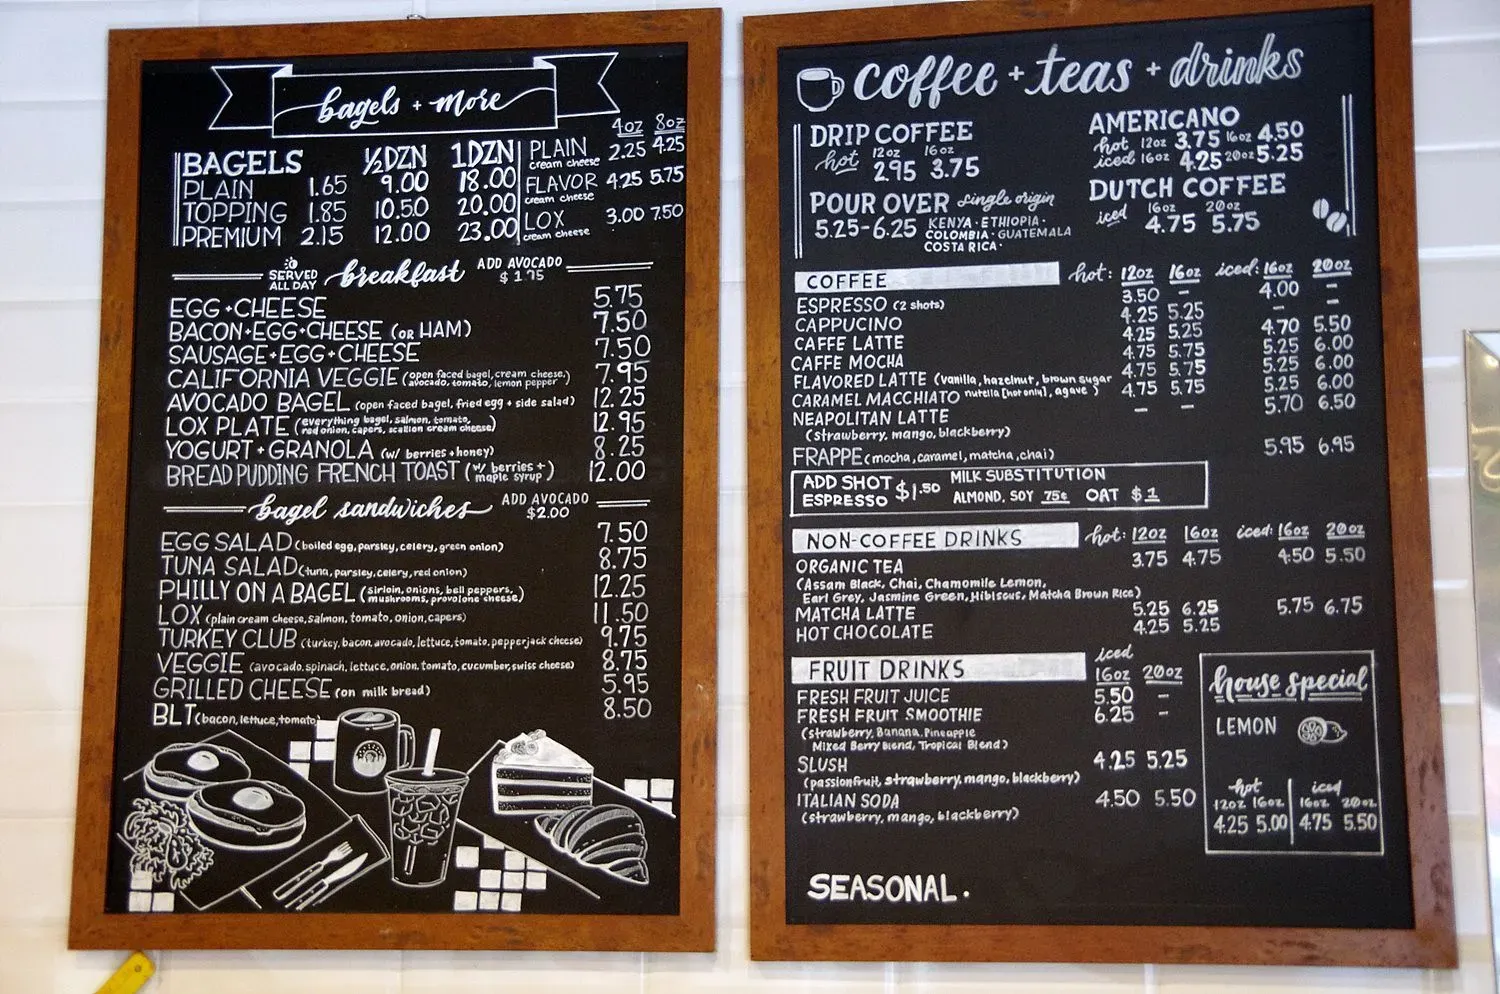 bagels + more
4oz 8oz
BAGELS ½DZN 1DZN
PLAIN 1.65 9.00 18.00
TOPPING 1.85 10.50 20.00
PREMIUM 2.15 12.00 23.00
PLAIN 2.25 4.25
cream cheese
FLAVOR 4.25 5.75
cream cheese
LOX 3.00 7.50
cream cheese
SERVED ALL DAY breakfast ADD AVOCADO $1.75
EGG+CHEESE 5.75
BACON+EGG+CHEESE (OR HAM) 7.50
SAUSAGE+EGG+CHEESE 7.50
CALIFORNIA VEGGIE (open faced bagel, cream cheese, avocado, tomato, lemon pepper) 7.95
AVOCADO BAGEL (open faced bagel, fried egg + side salad) 12.25
LOX PLATE (everything bagel, salmon, tomato, red onion, capers, scallion cream cheese) 12.95
YOGURT+GRANOLA (w/ berries+honey) 8.25
BREAD PUDDING FRENCH TOAST (w/ berries + maple syrup) 12.00
bagel sandwiches ADD AVOCADO $2.00
EGG SALAD (boiled egg, parsley, celery, green onion) 7.50
TUNA SALAD (tuna, parsley, celery, red onion) 8.75
PHILLY ON A BAGEL (sirloin, onions, bell peppers, mushrooms, provolone cheese) 12.25
LOX (plain cream cheese, salmon, tomato, onion, capers) 11.50
TURKEY CLUB (turkey, bacon, avocado, lettuce, tomato, pepperjack cheese) 9.75
VEGGIE (avocado, spinach, lettuce, onion, tomato, cucumber, swiss cheese) 8.75
GRILLED CHEESE (on milk bread) 5.95
BLT (bacon, lettuce, tomato) 8.50
coffee + teas + drinks
DRIP COFFEE
12oz 16oz
hot 2.95 3.75
POUR OVER single origin
5.25-6.25 KENYA · ETHIOPIA ·
COLOMBIA · GUATEMALA
COSTA RICA ·
AMERICANO
hot 12oz 3.75 16oz 4.50
iced 16oz 4.25 20oz 5.25
DUTCH COFFEE
16oz 20oz
iced 4.75 5.75
COFFEE hot: 12oz 16oz iced: 16oz 20oz
ESPRESSO (2 shots) 3.50 – 4.00 –
CAPPUCINO 4.25 5.25 – –
CAFFE LATTE 4.25 5.25 4.70 5.50
CAFFE MOCHA 4.75 5.75 5.25 6.00
FLAVORED LATTE (vanilla, hazelnut, brown sugar 4.75 5.75 5.25 6.00
nutella [hot only], agave)
CARAMEL MACCHIATO 4.75 5.75 5.25 6.00
NEAPOLITAN LATTE – – 5.70 6.50
(strawberry, mango, blackberry)
FRAPPE (mocha, caramel, matcha, chai) 5.95 6.95
ADD SHOT ESPRESSO $1.50
MILK SUBSTITUTION
ALMOND, SOY 75¢ OAT $1
NON-COFFEE DRINKS hot: 12oz 16oz iced: 16oz 20oz
ORGANIC TEA 3.75 4.75 4.50 5.50
(Assam Black, Chai, Chamomile Lemon,
Earl Grey, Jasmine Green, Hibiscus, Matcha Brown Rice)
MATCHA LATTE 5.25 6.25 5.75 6.75
HOT CHOCOLATE 4.25 5.25
iced
FRUIT DRINKS 16oz 20oz
FRESH FRUIT JUICE 5.50 –
FRESH FRUIT SMOOTHIE 6.25 –
(strawberry, Banana, Pineapple
Mixed Berry Blend, Tropical Blend)
SLUSH 4.25 5.25
(passionfruit, strawberry, mango, blackberry)
ITALIAN SODA 4.50 5.50
(strawberry, mango, blackberry)
house special
LEMON
hot iced
12oz 16oz 16oz 20oz
4.25 5.00 4.75 5.50
SEASONAL.